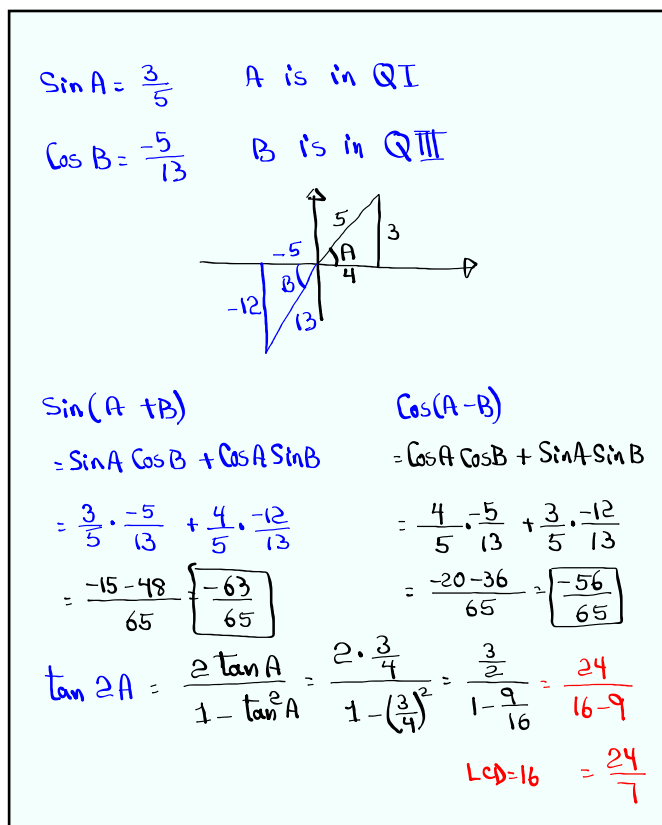 Sin A = 3/5 A is in QI
Cos B = -5/13 B is in QIII
5 3 A 4
-5 B -12 13
Sin(A + B)
= Sin A Cos B + Cos A Sin B
= 3/5 · -5/13 + 4/5 · -12/13
= -15-48/65 = -63/65
Cos(A - B)
= Cos A Cos B + Sin A Sin B
= 4/5 · -5/13 + 3/5 · -12/13
= -20-36/65 = -56/65
tan 2A = 2 tan A / 1 - tan²A = 2 · 3/4 / 1 - (3/4)² = 3/2 / 1 - 9/16 = 24/16-9
LCD=16 = 24/7